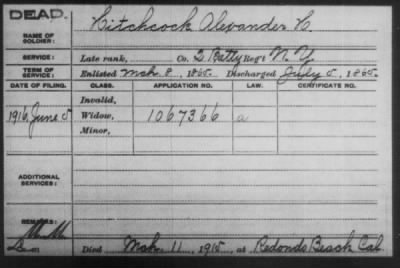 DEAD.
NAME OF SOLDIER: Hitchcock Alexander C.
SERVICE: Late rank, Co. 2 Batty Reg't N. Y.
TERM OF SERVICE: Enlisted Mch 8, 1865. Discharged July 5, 1865
DATE OF FILING. CLASS. APPLICATION NO. LAW. CERTIFICATE NO.
Invalid,
1916 June 5 Widow, 1067366 a
Minor,
ADDITIONAL SERVICES:
REMARKS:
Died Mch. 11, 1915, at Redondo Beach Cal.